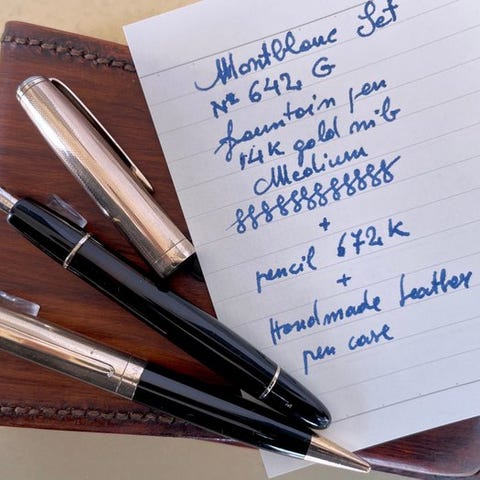 Montblanc Set
Nº 642 G
fountain pen
14K gold nib
Medium
+
pencil 672 K
+
Handmade Leather
pen case